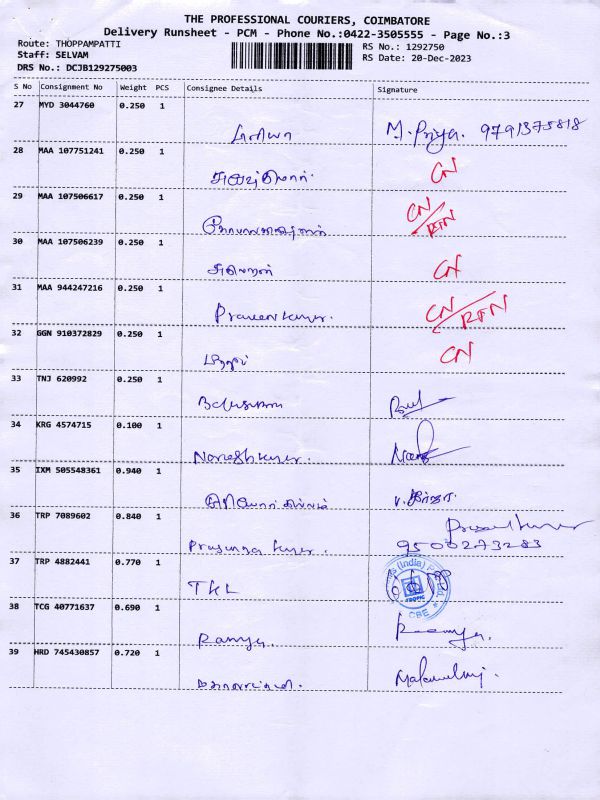 THE PROFESSIONAL COURIERS, COIMBATORE
Delivery Runsheet - PCM - Phone No.:0422-3505555 - Page No.:3
Route: THOPPAMPATTI
RS No.: 1292750
Staff: SELVAM
RS Date: 20-Dec-2023
DRS No.: DCJB129275003
S No Consignment No Weight PCS Consignee Details Signature
27 MYD 3044760 0.250 1
M. Priya. 9791375818
28 MAA 107751241 0.250 1
CN
29 MAA 107506617 0.250 1
CN/RTN
30 MAA 107506239 0.250 1
CN
31 MAA 944247216 0.250 1
Praveen kumar. CN/RTN
32 GGN 910372829 0.250 1
CN
33 TNJ 620992 0.250 1
34 KRG 4574715 0.100 1
Nareshkumar.
35 IXM 505548361 0.940 1
36 TRP 7089602 0.840 1
Prasanna kumar. 9500273283
37 TRP 4882441 0.770 1
TKL
(India) CBE
38 TCG 40771637 0.690 1
Ramya. Ramya.
39 HRD 745430857 0.720 1